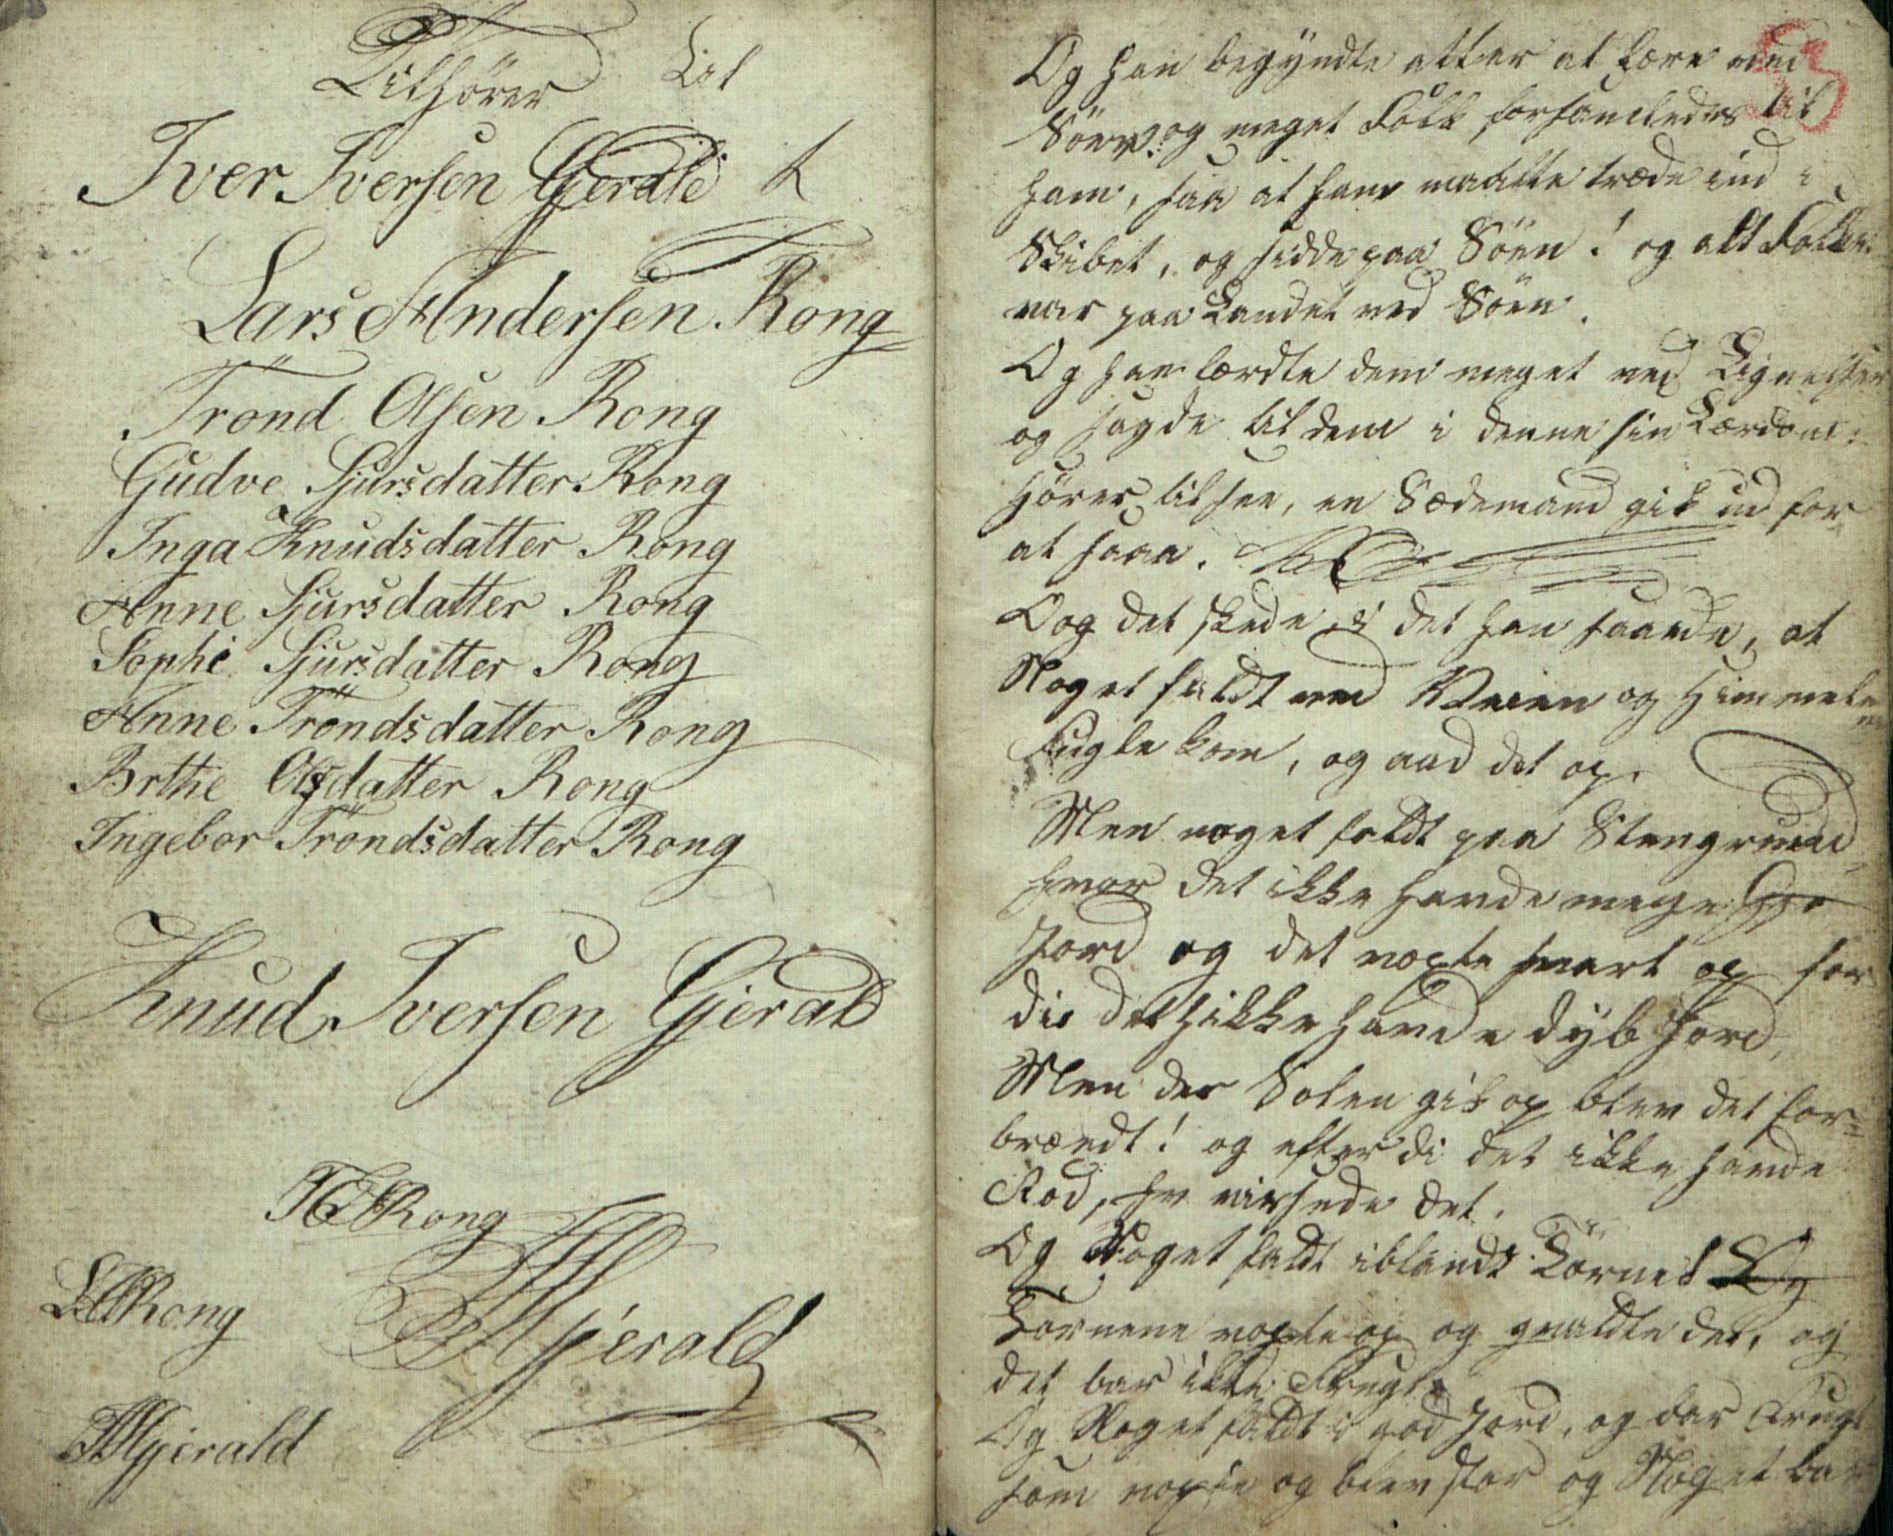 Tilhörer Lil
Iver Iversen Gjerald
Lars Andersen Rong
Trönd Olsen Rong
Gudve Sjursdatter Rong
Inga Knudsdatter Rong
Anne Sjursdatter Rong
Sophi Sjursdatter Rong
Anne Tröndsdatter Rong
Brthe Olsdatter Rong
Ingebor Tröndsdatter Rong
Knud Iversen Gjerald
Rong
Rong
Gjerald
Gjerald
Og han begyndte atter at lære ved
Söen og meget Folk forsamledes til
ham, saa at han maatte træde ind i
Skibet, og sidde paa Söen! og alt Folket
var paa Landet ved Söen.
Og han lærdte dem meget ved Lignelser
og sagde til dem i denne sin Lærdom:
Hörer til see, en Sædemand gik ud for
at saae.
Oog det skede, i det han saaede, at
Noget faldt ved Veien og Himmelens
Fugle kom, og aad det op.
Men noget faldt paa Stengrund
hvor det ikke havde mege
Jord og det voxte snart op for
di det ikke havde dyb Jord,
Men der Solen gik op blev det for=
brændt! og efterdi det ikke havde
Rod, visnede det.
Og Noget faldt iblandt Törnes Og
Tornene voxte op og qvaldte det, og
det bar ikke Frugt
Og Noget faldt i god Jord, og bar Frugt
som voxte og blev stor og Noget bar